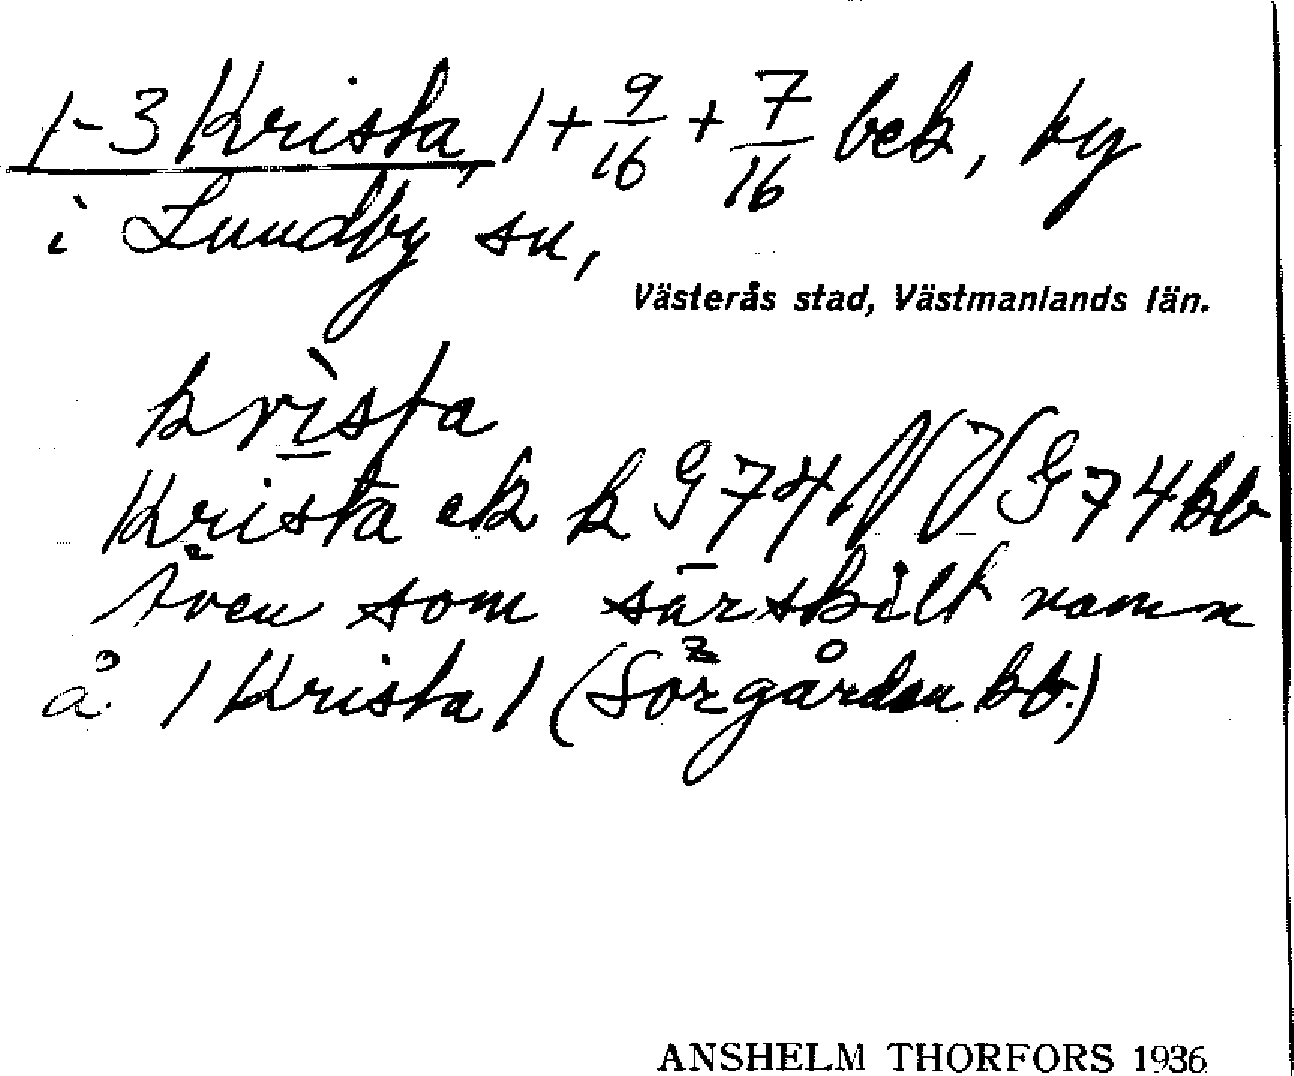 1-3 Krista, 1 + 9/16 + 7/16 bek, by
i Lundby sn,
Västerås stad, Västmanlands län.
krìsta
Krista ek k G 74 NV G 74 kb
även som särskilt namn
å 1 Krista 1 (Sörgården kb.)
ANSHELM THORFORS 1936